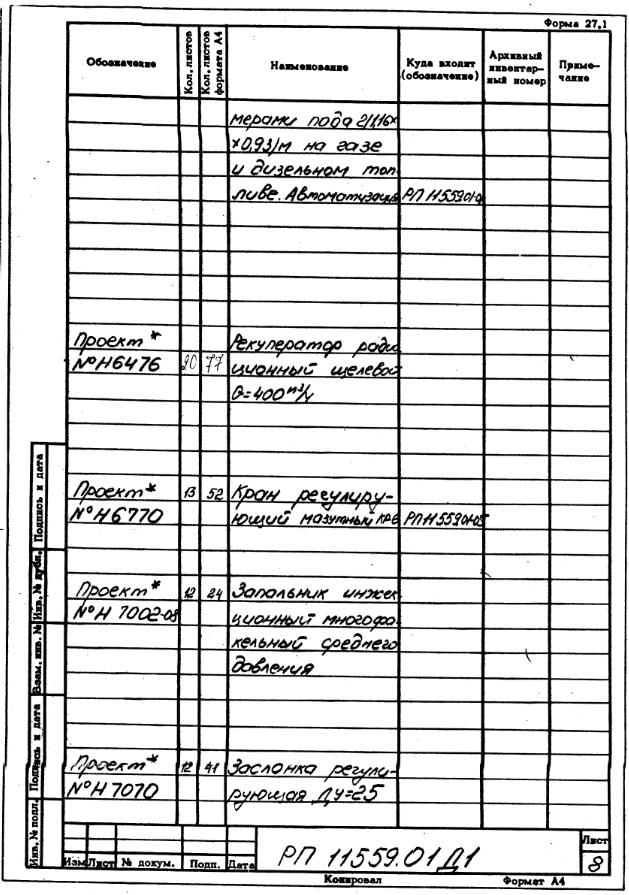 Форма 27.1
Обозначение Кол. листов Кол. листов формата А4 Наименование Куда входит (обозначение) Архивный инвентарный номер Примечание
мерами пода 2/1,16×
×0,93/м на газе
и дизельном топ
ливе. Автоматизация
Проект * Рекуператор ради
№ Н6476 20 77 ционный щелевой
Q=400 м³/ч
Проект * 13 52 Кран регулиру-
№ Н6770 ющий мазутный
Проект * 12 24 Запальник инжек
№ Н 7002-08 ционный многофа
кельный среднего
давления
Проект * 12 41 Заслонка регули-
№ Н 7070 рующая Ду=25
Инв. № подл. Подпись и дата Взам. инв. № Инв. № дубл. Подпись и дата
Изм Лист № докум. Подп. Дата
РП 11559.01 Д1
Лист
8
Копировал Формат А4